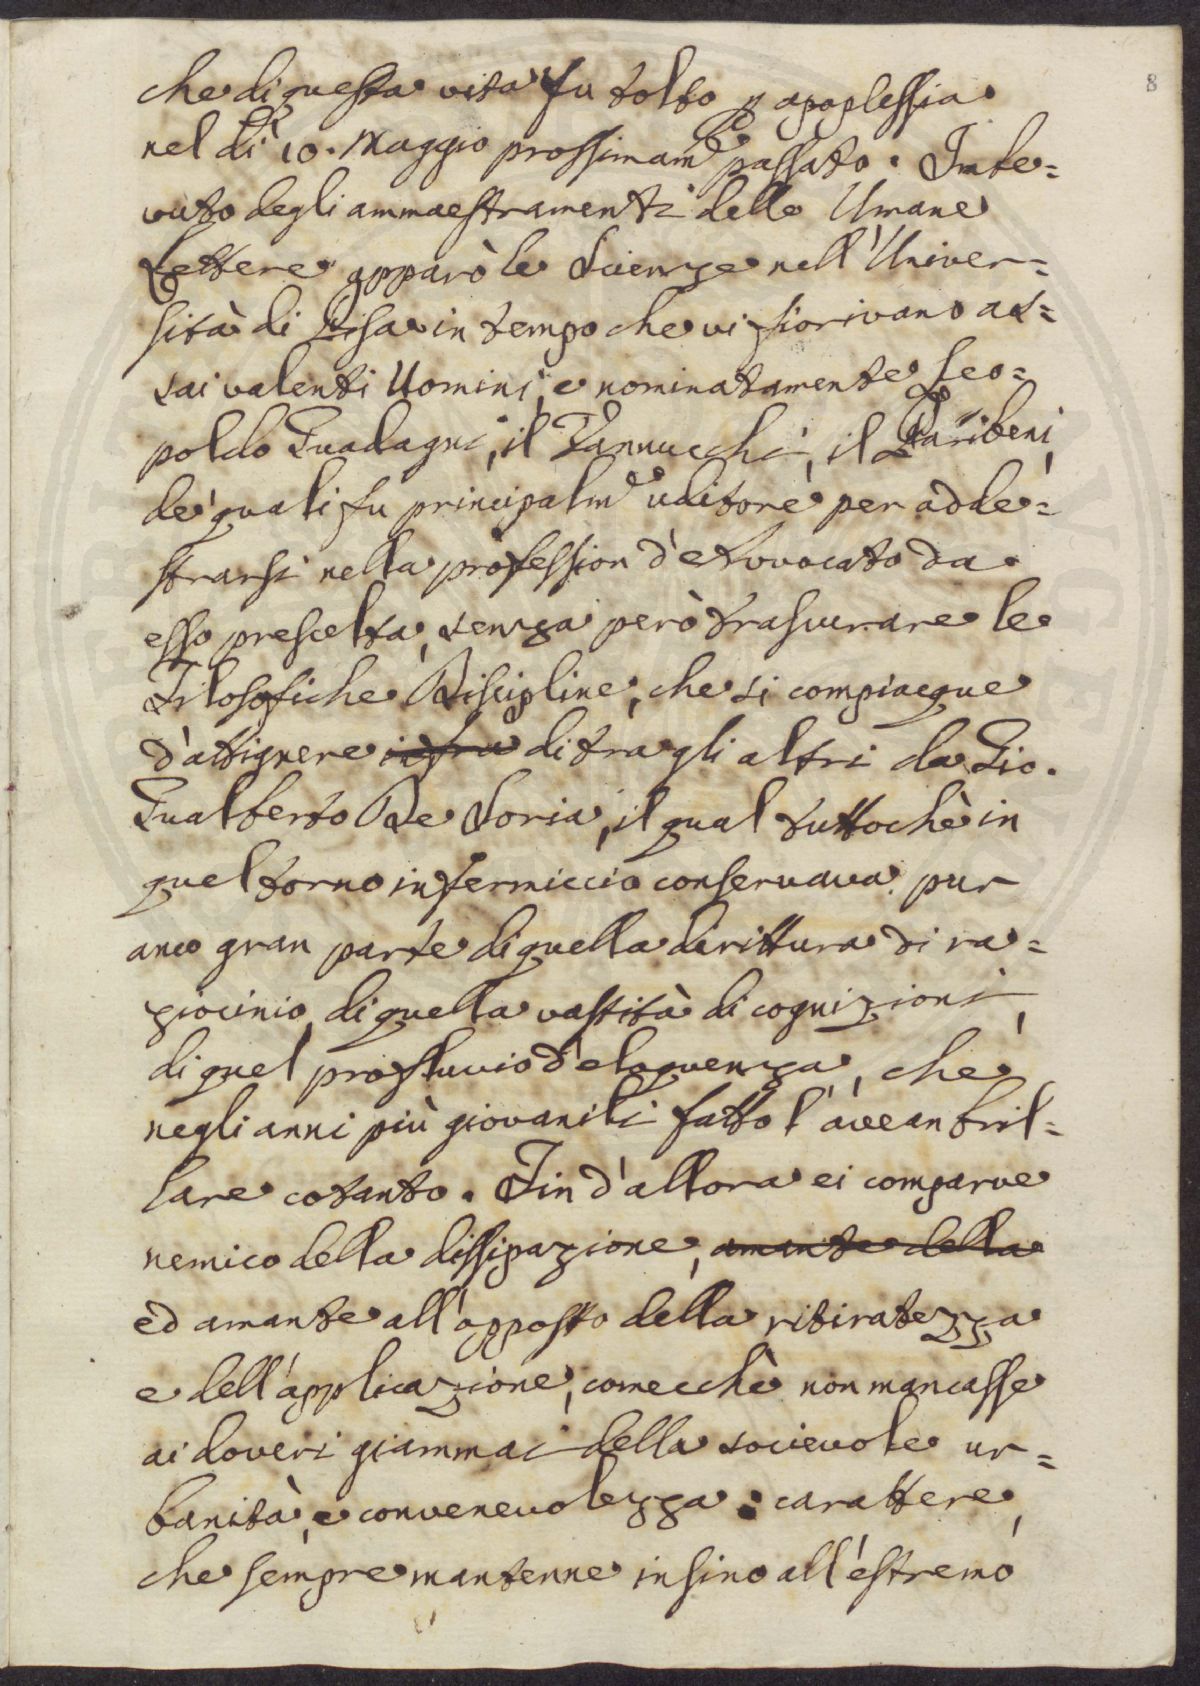 8
che di questa vita fu tolto p apoplessia
nel dì 10. Maggio prossimam.e passato. Imbe=
vuto degli ammaestramenti delle Umane
Lettere apparò le Scienze nell'Univer=
sità di Pisa in tempo che vi fiorivano as=
sai valenti Uomini, e nominatamente Leo=
poldo Guadagni, il Tannucchi, il Paribeni,
de' quali fu principalm.e uditore per adde=
strarsi nella profession d'Avvocato da
esso prescelta, senza però trascurare le
Filosofiche Discipline, che si compiacque
d'attignere infra di tra gli altri da Gio.
Gualberto De Soria, il qual tuttochè in
quel torno infermiccio conservava pur
anco gran parte di quella dirittura di ra=
ziocinio, di quella vastità di cognizioni,
di quel profluvio d'eloquenza, che
negli anni più giovanili fatto l'avean bril=
lare cotanto. Fin d'allora ei comparve
nemico della dissipazione, amante della
ed amante all'opposto della ritiratezza
e dell'applicazione, comecchè non mancasse
ai doveri giammai della socievole ur=
banità, e convenevolezza: carattere,
che sempre mantenne insino all'estremo